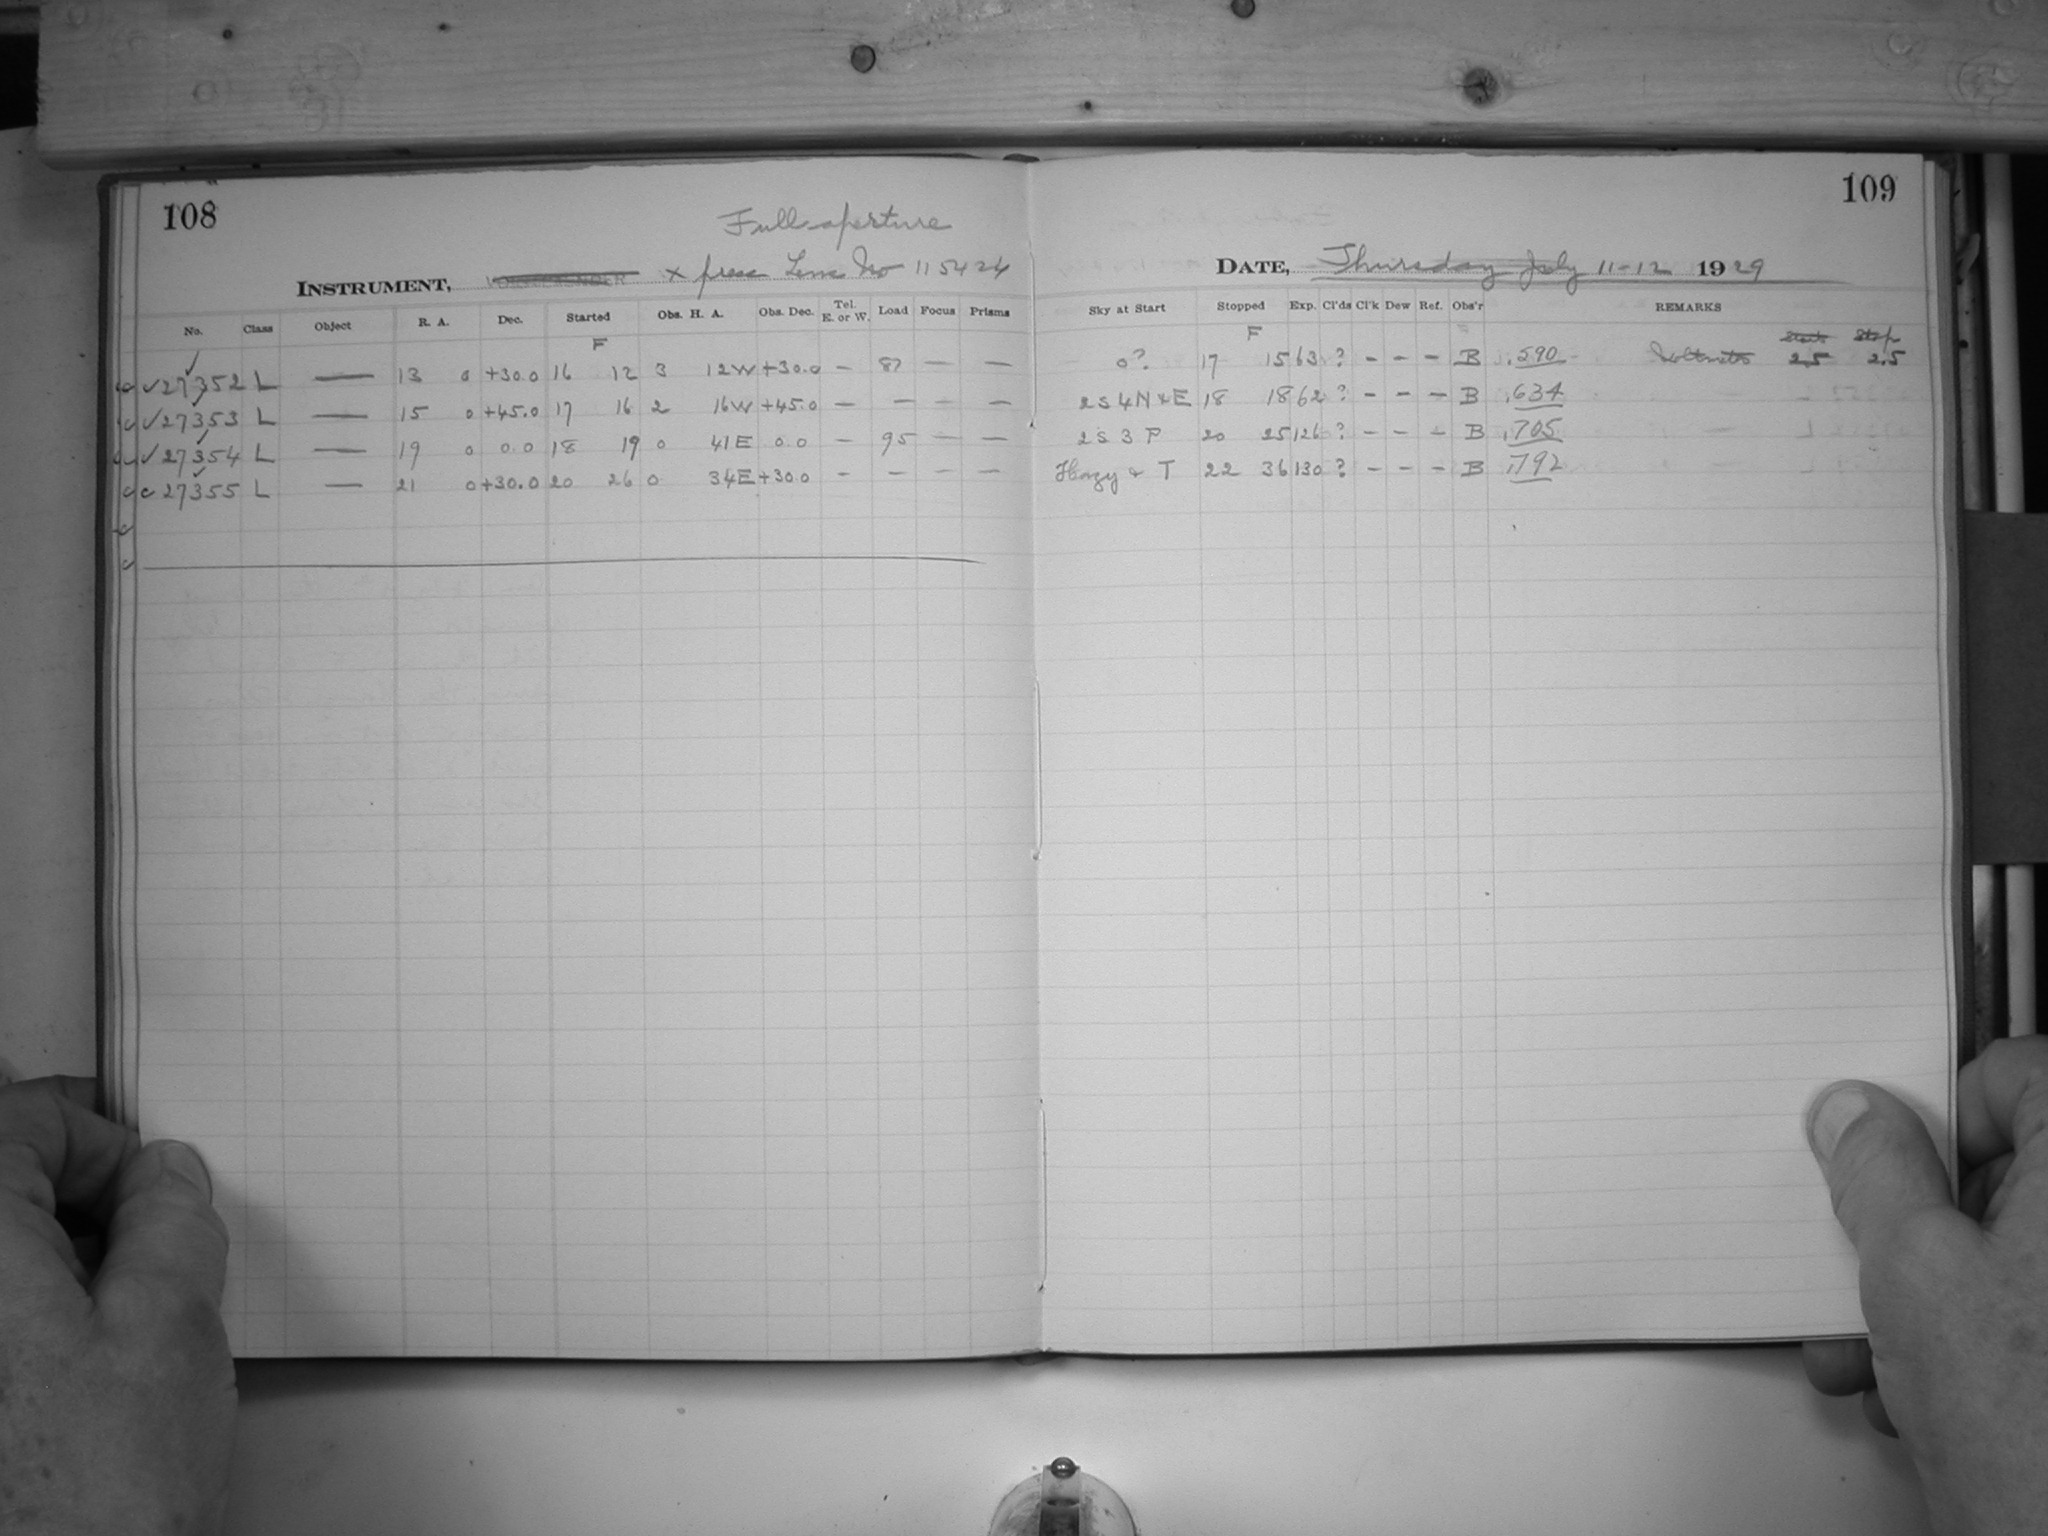 108
Full aperture
INSTRUMENT, Xpress Lens No 115424
No. Class Object R. A. Dec. Started Obs. H. A. Obs. Dec. Tel. E. or W. Load Focus Prisms
F
✓27352 L — 13 0 +30.0 16 12 3 12W +30.0 – 87 — —
✓27353 L — 15 0 +45.0 17 16 2 16W +45.0 – — — —
✓27354 L — 19 0 0.0 18 19 0 41E 0.0 – 95 — —
27355 L — 21 0 +30.0 20 26 0 34E +30.0 – — — —
109
DATE, Thursday July 11-12 1929
Sky at Start Stopped Exp. Cl'ds Cl'k Dew Ref. Obs'r REMARKS
F Start Stop
0? 17 15 63 ? – – – B .590 Voltmeter 2.5 2.5
2 S 4 N & E 18 18 62 ? – – – B .634
2 S 3 P 20 25 126 ? – – – B .705
Hazy & T 22 36 130 ? – – – B .792